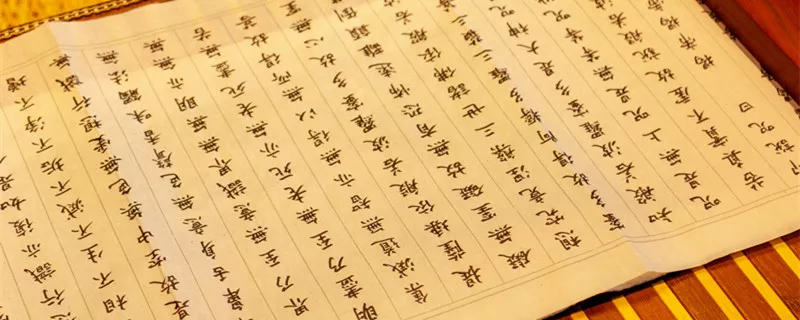 行識亦復如是
相不生不滅不垢不淨不增
是故空中無色無受想行識
鼻舌身意無色聲香味觸法無
界乃至無意識界無無明亦無
明盡乃至無老死亦無老死盡無
集滅道無智亦無得以無所得故
提薩埵依般若波羅蜜多故心無
礙無罣礙故無有恐怖遠離顛倒
想究竟涅槃三世諸佛依般若波
蜜多故得阿耨多羅三藐三
知般若波羅蜜多是大神咒
咒是無上咒是無等等咒
苦真實不虛故說般若
說咒曰揭帝揭